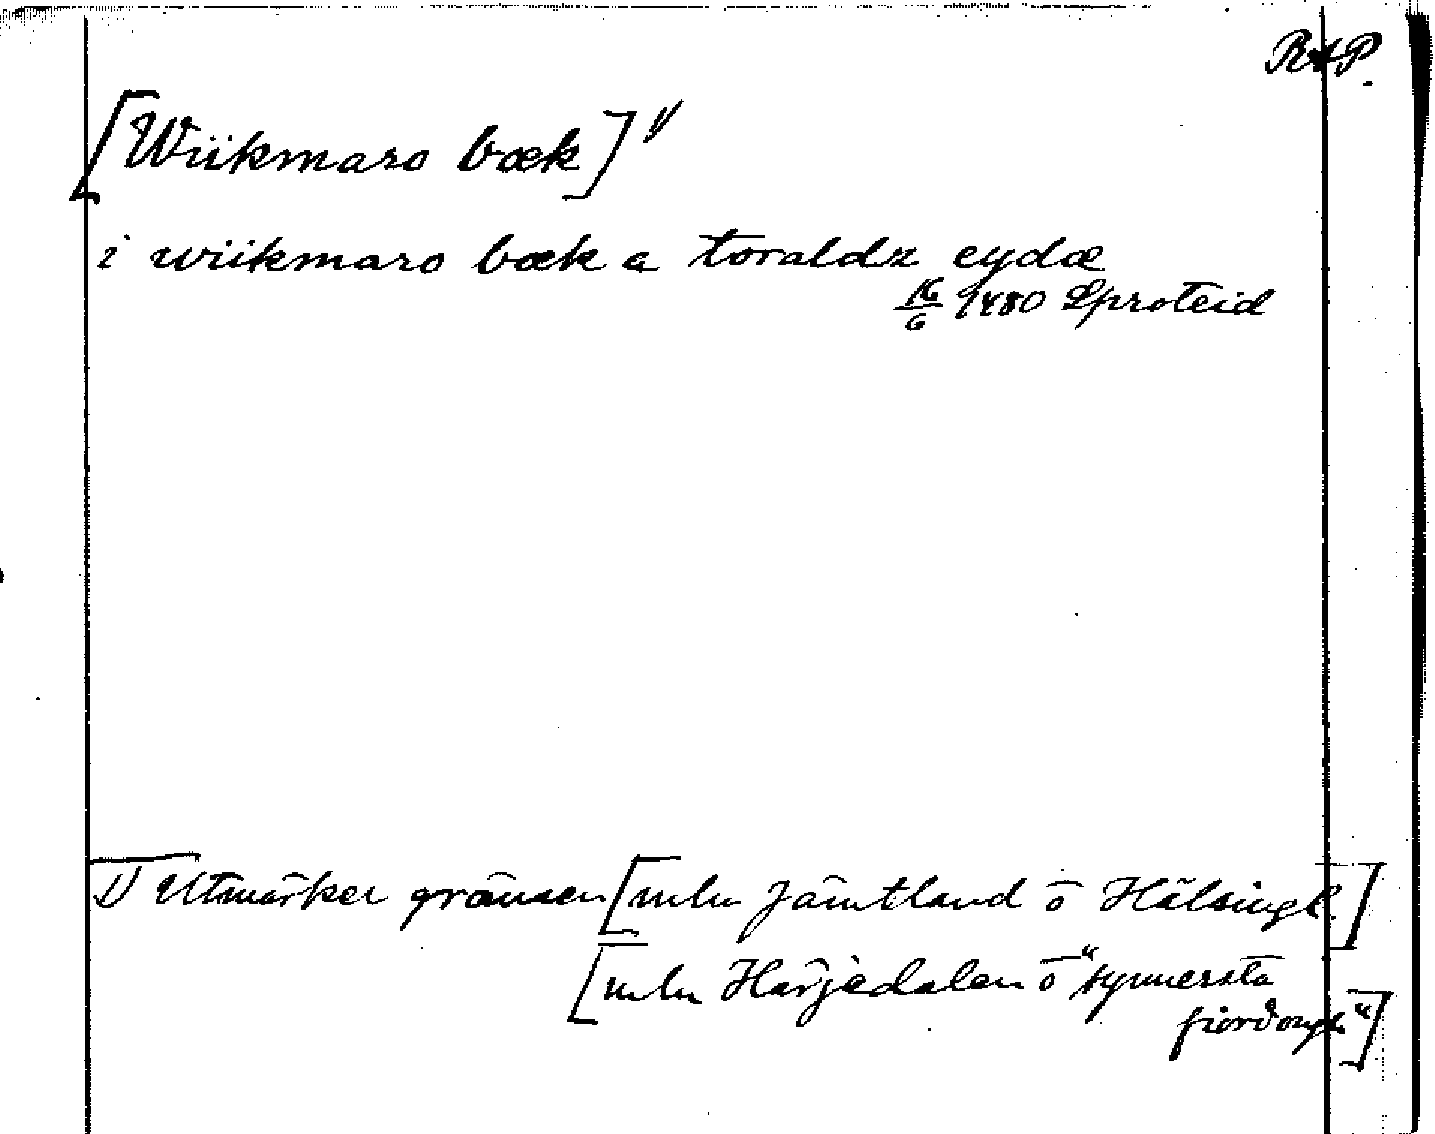 RAP.
[Wiikmaro bæk] 1)
i wiikmaro bæk a toraldz eydæ
16/6 1480 Sproteid
1) Utmärker gränsen [mln Jämtland o Hälsingl.]
[mln Härjedalen o "synnersta
fiordongh"]